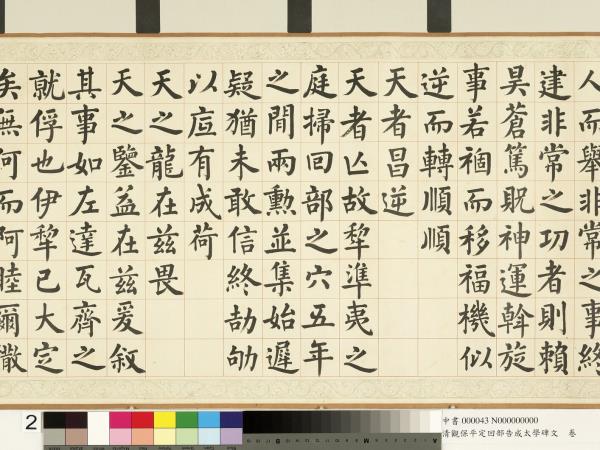 人而舉非常之事終
建非常之功者則賴
昊蒼篤貺神運斡旋
事若禍而移福機似
逆而轉順順
天者昌逆
天者亡故犂準夷之
庭掃回部之穴五年
之閒兩勳並集始遲
疑猶未敢信終劼劬
以底有成荷
天之龍在茲畏
天之鑒益在茲爰敘
其事如左達瓦齊之
就俘也伊犂已大定
矣無何而阿睦爾撒
2
中書 000043 N000000000
清觀保平定回部告成太學碑文 卷